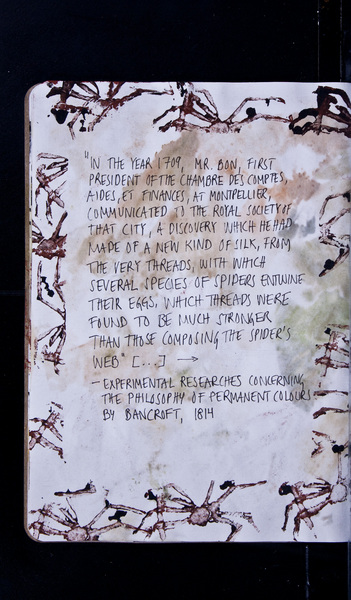 "IN THE YEAR 1709, MR. BON, FIRST
PRESIDENT OF THE CHAMBRE DES COMPTES,
AIDES, ET FINANCES, AT MONTPELLIER,
COMMUNICATED TO THE ROYAL SOCIETY OF
THAT CITY, A DISCOVERY WHICH HE HAD
MADE OF A NEW KIND OF SILK, FROM
THE VERY THREADS, WITH WHICH
SEVERAL SPECIES OF SPIDERS ENTWINE
THEIR EGGS, WHICH THREADS WERE
FOUND TO BE MUCH STRONGER
THAN THOSE COMPOSING THE SPIDER'S
WEB" [...] →
- EXPERIMENTAL RESEARCHES CONCERNING
THE PHILOSOPHY OF PERMANENT COLOURS
BY BANCROFT, 1814